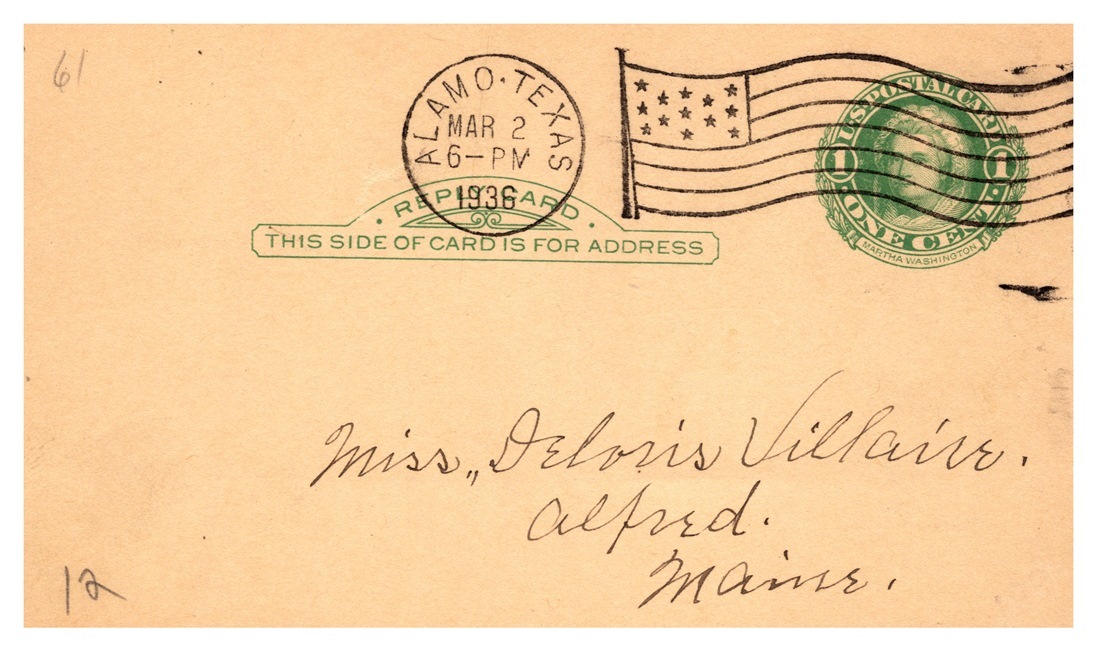 61
ALAMO·TEXAS
MAR 2
6-PM
1936
U.S. POSTAL CARD
1 1
·ONE CENT·
MARTHA WASHINGTON
· REPLY CARD ·
THIS SIDE OF CARD IS FOR ADDRESS
Miss,, Deloris Villaire.
Alfred.
Maine.
12